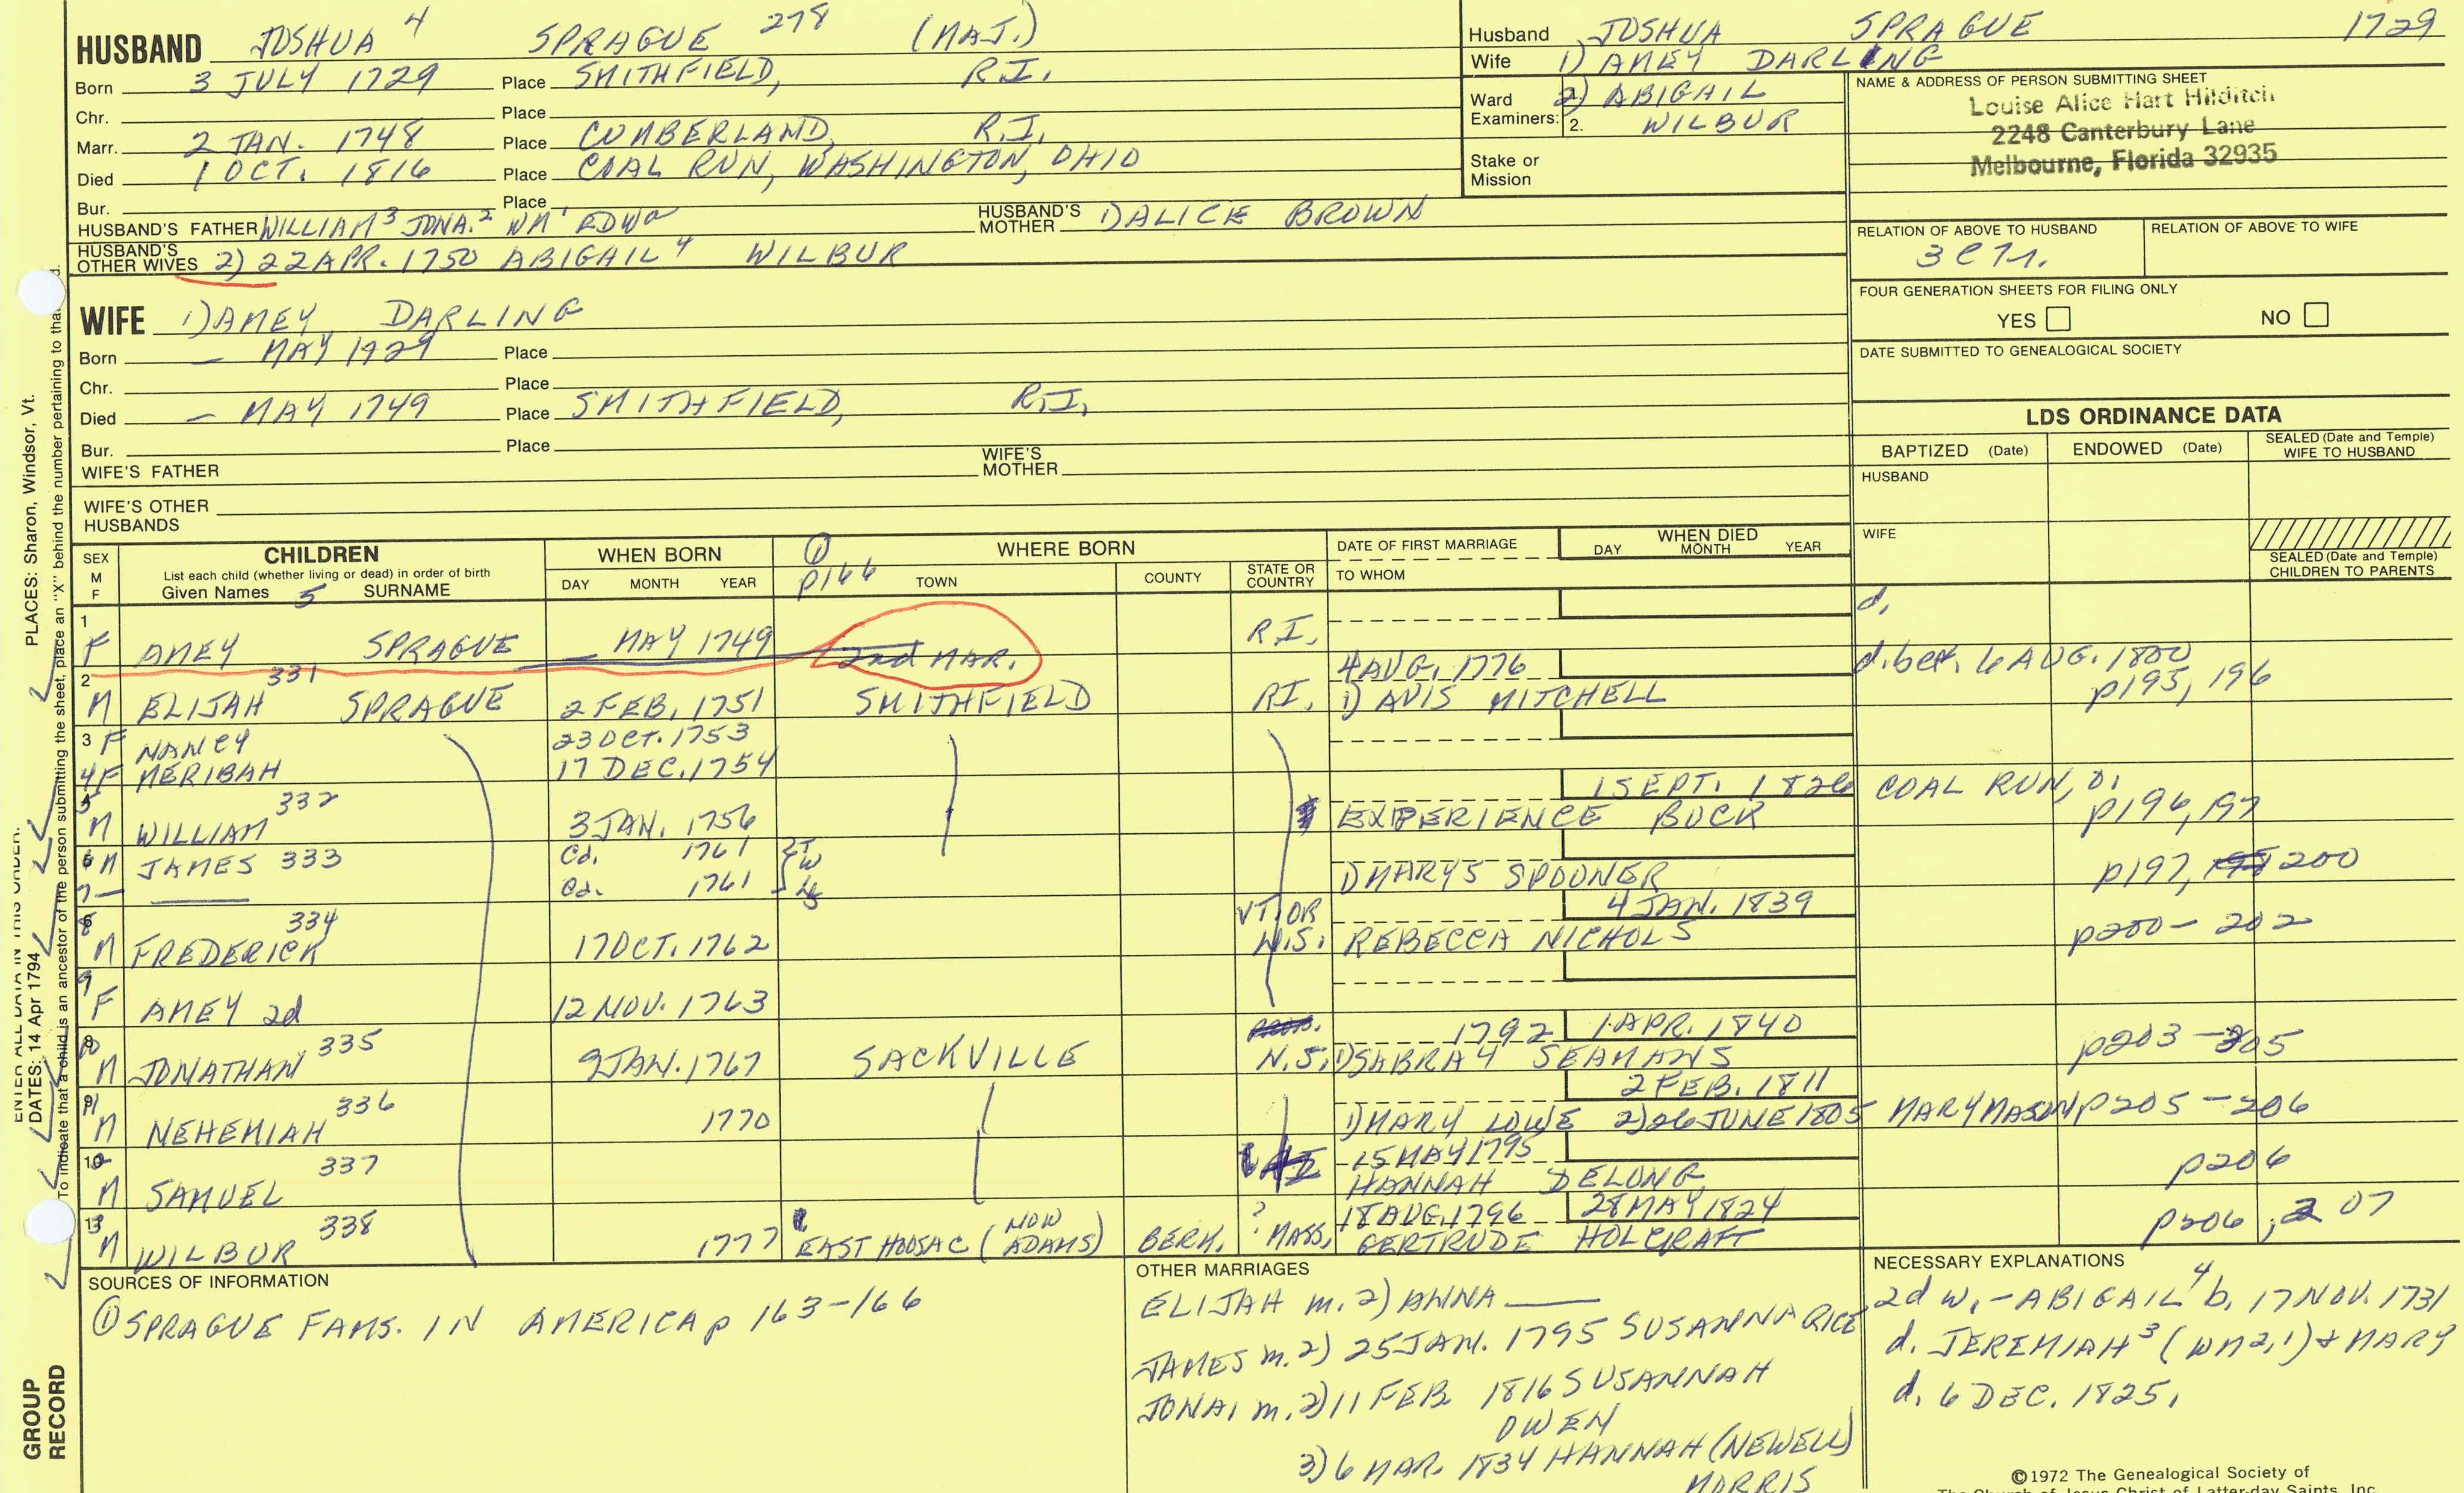 HUSBAND JOSHUA 4 SPRAGUE 278 (MAJ.)
Born 3 JULY 1729 Place SMITHFIELD, R.I.
Chr. Place
Marr. 2 JAN. 1748 Place CUMBERLAND, R.I.
Died 1 OCT. 1816 Place COAL RUN, WASHINGTON, OHIO
Bur. Place
HUSBAND'S FATHER WILLIAM 3 JONA. 2 WM 1 EDWD HUSBAND'S MOTHER 1) ALICE BROWN
HUSBAND'S OTHER WIVES 2) 22 APR. 1750 ABIGAIL 4 WILBUR
WIFE 1) AMEY DARLING
Born — MAY 1929 Place
Chr. Place
Died — MAY 1749 Place SMITHFIELD, R.I.
Bur. Place
WIFE'S FATHER WIFE'S MOTHER
WIFE'S OTHER HUSBANDS
Husband JOSHUA SPRAGUE 1729
Wife 1) AMEY DARLING
Ward Examiners: 2) ABIGAIL
2. WILBUR
Stake or Mission
NAME & ADDRESS OF PERSON SUBMITTING SHEET
Louise Alice Hart Hilditch
2248 Canterbury Lane
Melbourne, Florida 32935
RELATION OF ABOVE TO HUSBAND RELATION OF ABOVE TO WIFE
FOUR GENERATION SHEETS FOR FILING ONLY
YES NO
DATE SUBMITTED TO GENEALOGICAL SOCIETY
LDS ORDINANCE DATA
BAPTIZED (Date) ENDOWED (Date) SEALED (Date and Temple) WIFE TO HUSBAND
HUSBAND
WIFE
SEALED (Date and Temple) CHILDREN TO PARENTS
SEX M F
CHILDREN
List each child (whether living or dead) in order of birth
Given Names 5 SURNAME
WHEN BORN
DAY MONTH YEAR
① p166
WHERE BORN
TOWN COUNTY STATE OR COUNTRY
DATE OF FIRST MARRIAGE
TO WHOM
WHEN DIED
DAY MONTH YEAR
1 F AMEY SPRAGUE — MAY 1749 2nd MAR. R.I. d.
2 M ELIJAH 331 SPRAGUE 2 FEB. 1751 SMITHFIELD R.I. 4 AUG. 1776 1) AVIS MITCHELL d. bef. 6 AUG. 1800 p195, 196
3 F NANCY 23 OCT. 1753
4 F MERIBAH 17 DEC. 1754
5 M WILLIAM 332 3 JAN. 1756 EXPERIENCE BUCK 1 SEPT. 1826 COAL RUN, O. p196, 197
6 M JAMES 333 Ca. 1761 1) MARY 5 SPOONER p197, 200
7 — Ca. 1761
8 M FREDERICK 334 17 OCT. 1762 VT. OR N.S. REBECCA NICHOLS 4 JAN. 1839 p200-202
9 F AMEY 2d 12 NOV. 1763
10 M JONATHAN 335 9 JAN. 1767 SACKVILLE N.S. 1792 1) SABRA 4 SEAMANS 1 APR. 1840 p203-205
11 M NEHEMIAH 336 1770 1) MARY LOWE 2) 26 JUNE 1805 MARY MASON 2 FEB. 1811 p205-206
12 M SAMUEL 337 15 MAY 1795 HANNAH DELONG p206
13 M WILBUR 338 1777 EAST HOOSAC (NOW ADAMS) BERK. ? MASS. 18 AUG. 1796 GERTRUDE HOLCRAFT 28 MAY 1824 p206, 207
SOURCES OF INFORMATION
① SPRAGUE FAMS. IN AMERICA p 163-166
OTHER MARRIAGES
ELIJAH m. 2) ANNA ——
JAMES m. 2) 25 JAN. 1795 SUSANNA RICE
JONA. m. 2) 11 FEB 1816 SUSANNAH
OWEN
3) 6 MAR. 1834 HANNAH (NEWELL)
MORRIS
NECESSARY EXPLANATIONS
2d W. - ABIGAIL 4 b. 17 NOV. 1731
d. JEREMIAH 3 (WM 2,1) & MARY
d. 6 DEC. 1825.
©1972 The Genealogical Society of
The Church of Jesus Christ of Latter-day Saints, Inc.
PLACES: Sharon, Windsor, Vt.
ENTER ALL DATA IN THIS ORDER:
DATES: 14 Apr 1794
To indicate that a child is an ancestor of the person submitting the sheet, place an "X" behind the number pertaining to that
GROUP
RECORD